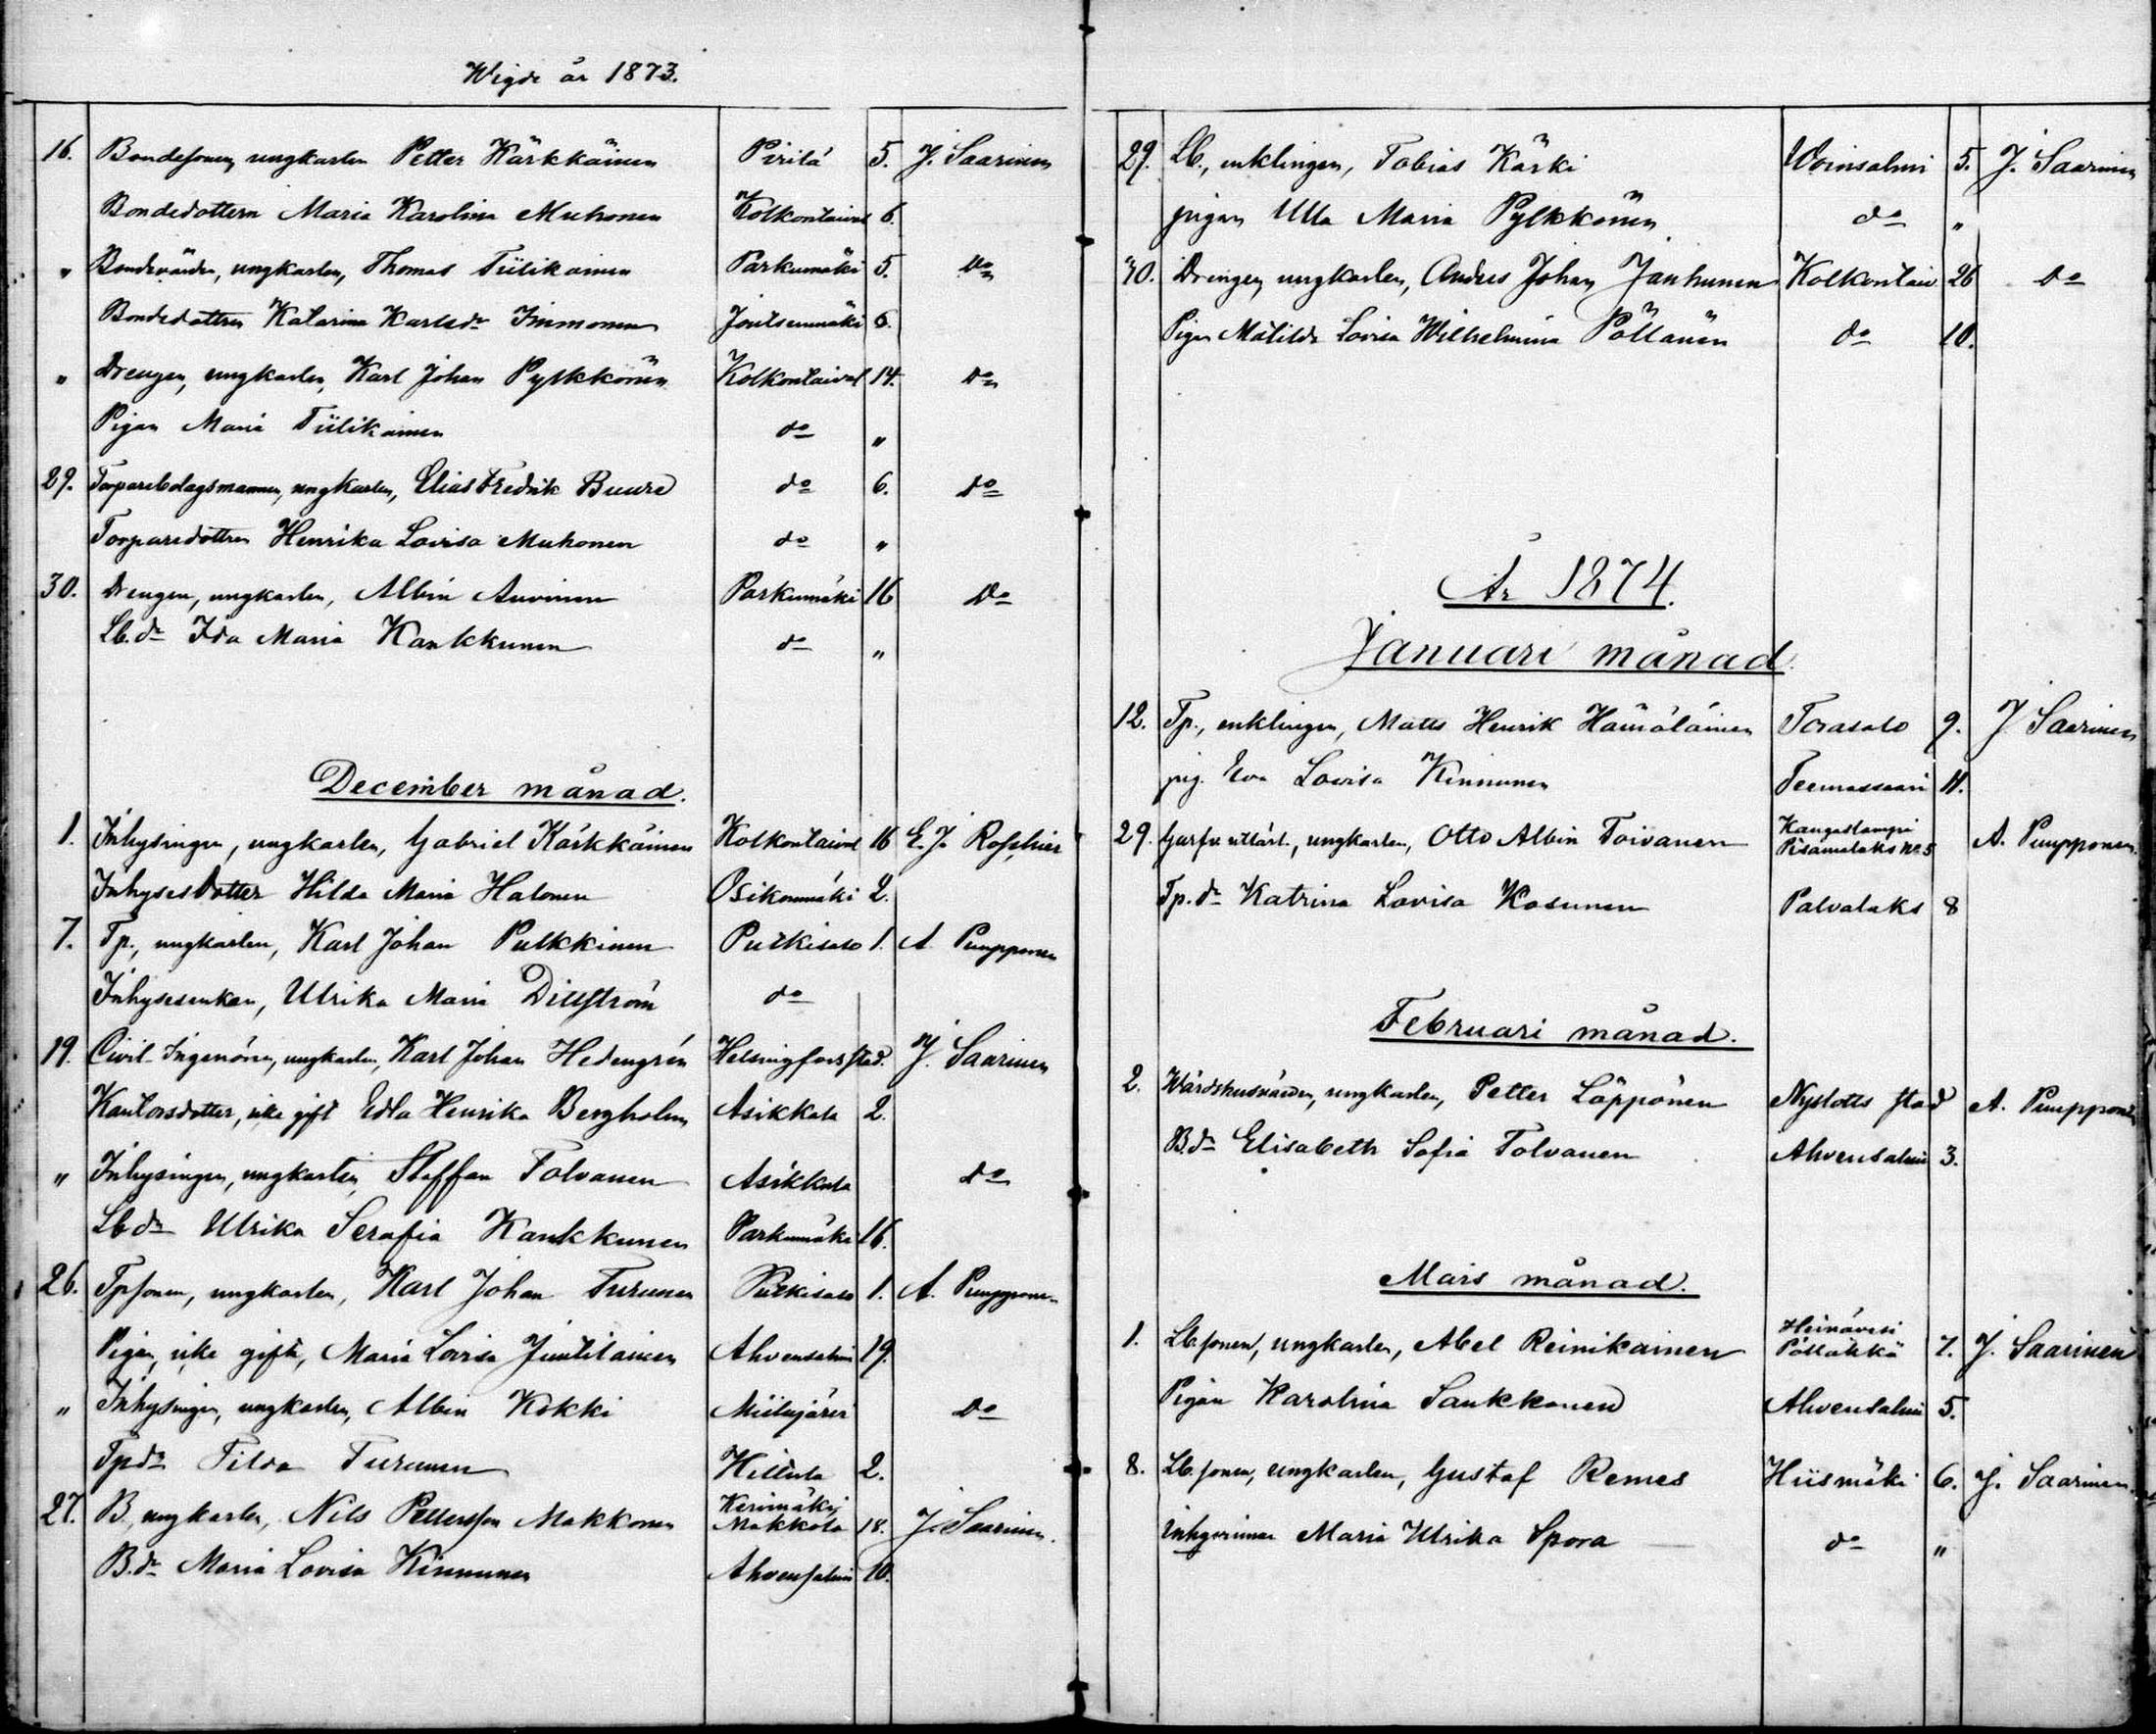 Wigde år 1873.
16. Bondesonen, ungkarlen Petter Kärkkäinen Pirilä 5. J. Saarinen
Bondedottern Maria Karolina Muhonen Kolkontaival 6.
" Bondevärden, ungkarlen, Thomas Tiilikainen Parkumäki 5. Do
Bondedottren Katarina Karlsdr Immonen Joutsenmäki 6.
" Drengen, ungkarlen, Karl Johan Pylkkönen Kolkontaival 14. Do
Pigan Maria Tiilikainen do "
29. Torparebolagsmannen, ungkarlen, Elias Fredrik Buure do 6. Do
Torparedottren Henrika Lovisa Muhonen do "
30. Drengen, ungkarlen, Albin Auvinen Parkumäki 16 Do
Lb. dr Ida Maria Kankkunen do "
December månad.
1. Inhysingen, ungkarlen, Gabriel Kärkkäinen Kolkontaival 16 E. J. Roschier
Inhysesdotter Hilda Maria Halonen Osikonmäki 2.
7. Tp., ungkarlen, Karl Johan Pulkkinen Putkisalo 1. A. Pumpponen
Inhysesenkan, Ulrika Maria Dillström do
19. Civil-Ingenören, ungkarlen, Karl Johan Hedengrén Helsingfors stad. J. Saarinen
Kantorsdotter, icke gift Edla Henrika Bergholm Asikkala 2.
" Inhysingen, ungkarlen, Steffan Tolvanen Asikkala do
Lb dr Ulrika Serafia Kankkunen Parkumäki 16.
26. Tpsonen, ungkarlen, Karl Johan Turunen Putkisalo 1. A. Pumpponen
Pigan, icke gifta, Maria Lovisa Juutilainen Ahvensalmi 19.
" Inhysingen, ungkarlen, Albin Kokki Do
Tpdr Tilda Turunen 2.
27. B, ungkarlen, Nils Pettersson Makkonen Kerimäki Makkola 18. J. Saarinen.
B. dr Maria Lovisa Kinnunen Ahvensalmi 10.
29. Lb., enklingen, Tobias Kärki Woinsalmi 5. J. Saarinen
pigan Ulla Maria Pylkkönen do "
30. Drengen, ungkarlen, Anders Johan Janhunen Kolkontaiv 26 Do
Pigan Matilda Lovisa Wilhelmina Pöllänen do 10.
År 1874.
Januari månad.
12. Tp., enklingen, Matts Henrik Hämäläinen Torasalo 9. J. Saarinen
pig. Eva Lovisa Kinnunen Teemassaari 11.
29. ungkarlen, Otto Albin Toivanen Kangaslampi Pisamalaks No 5 A. Pumpponen.
Tp. dr Katrina Lovisa Kosunen Palvalaks 8
Februari månad.
2. Wärdshusvärden, ungkarlen, Petter Löppönen Nyslotts stad A. Pumpponen
B. dr Elisabeth Sofia Tolvanen Ahvensalmi 3.
Mars månad.
1. Lb. sonen, ungkarlen, Abel Reinikainen Heinävesi Pölläkkä 7. J. Saarinen
Pigan Karolina Laukkanen Ahvensalmi 5.
8. Lb. sonen, ungkarlen, Gustaf Remes Hiismäki 6. J. Saarinen.
Maria Ulrika Spora do "